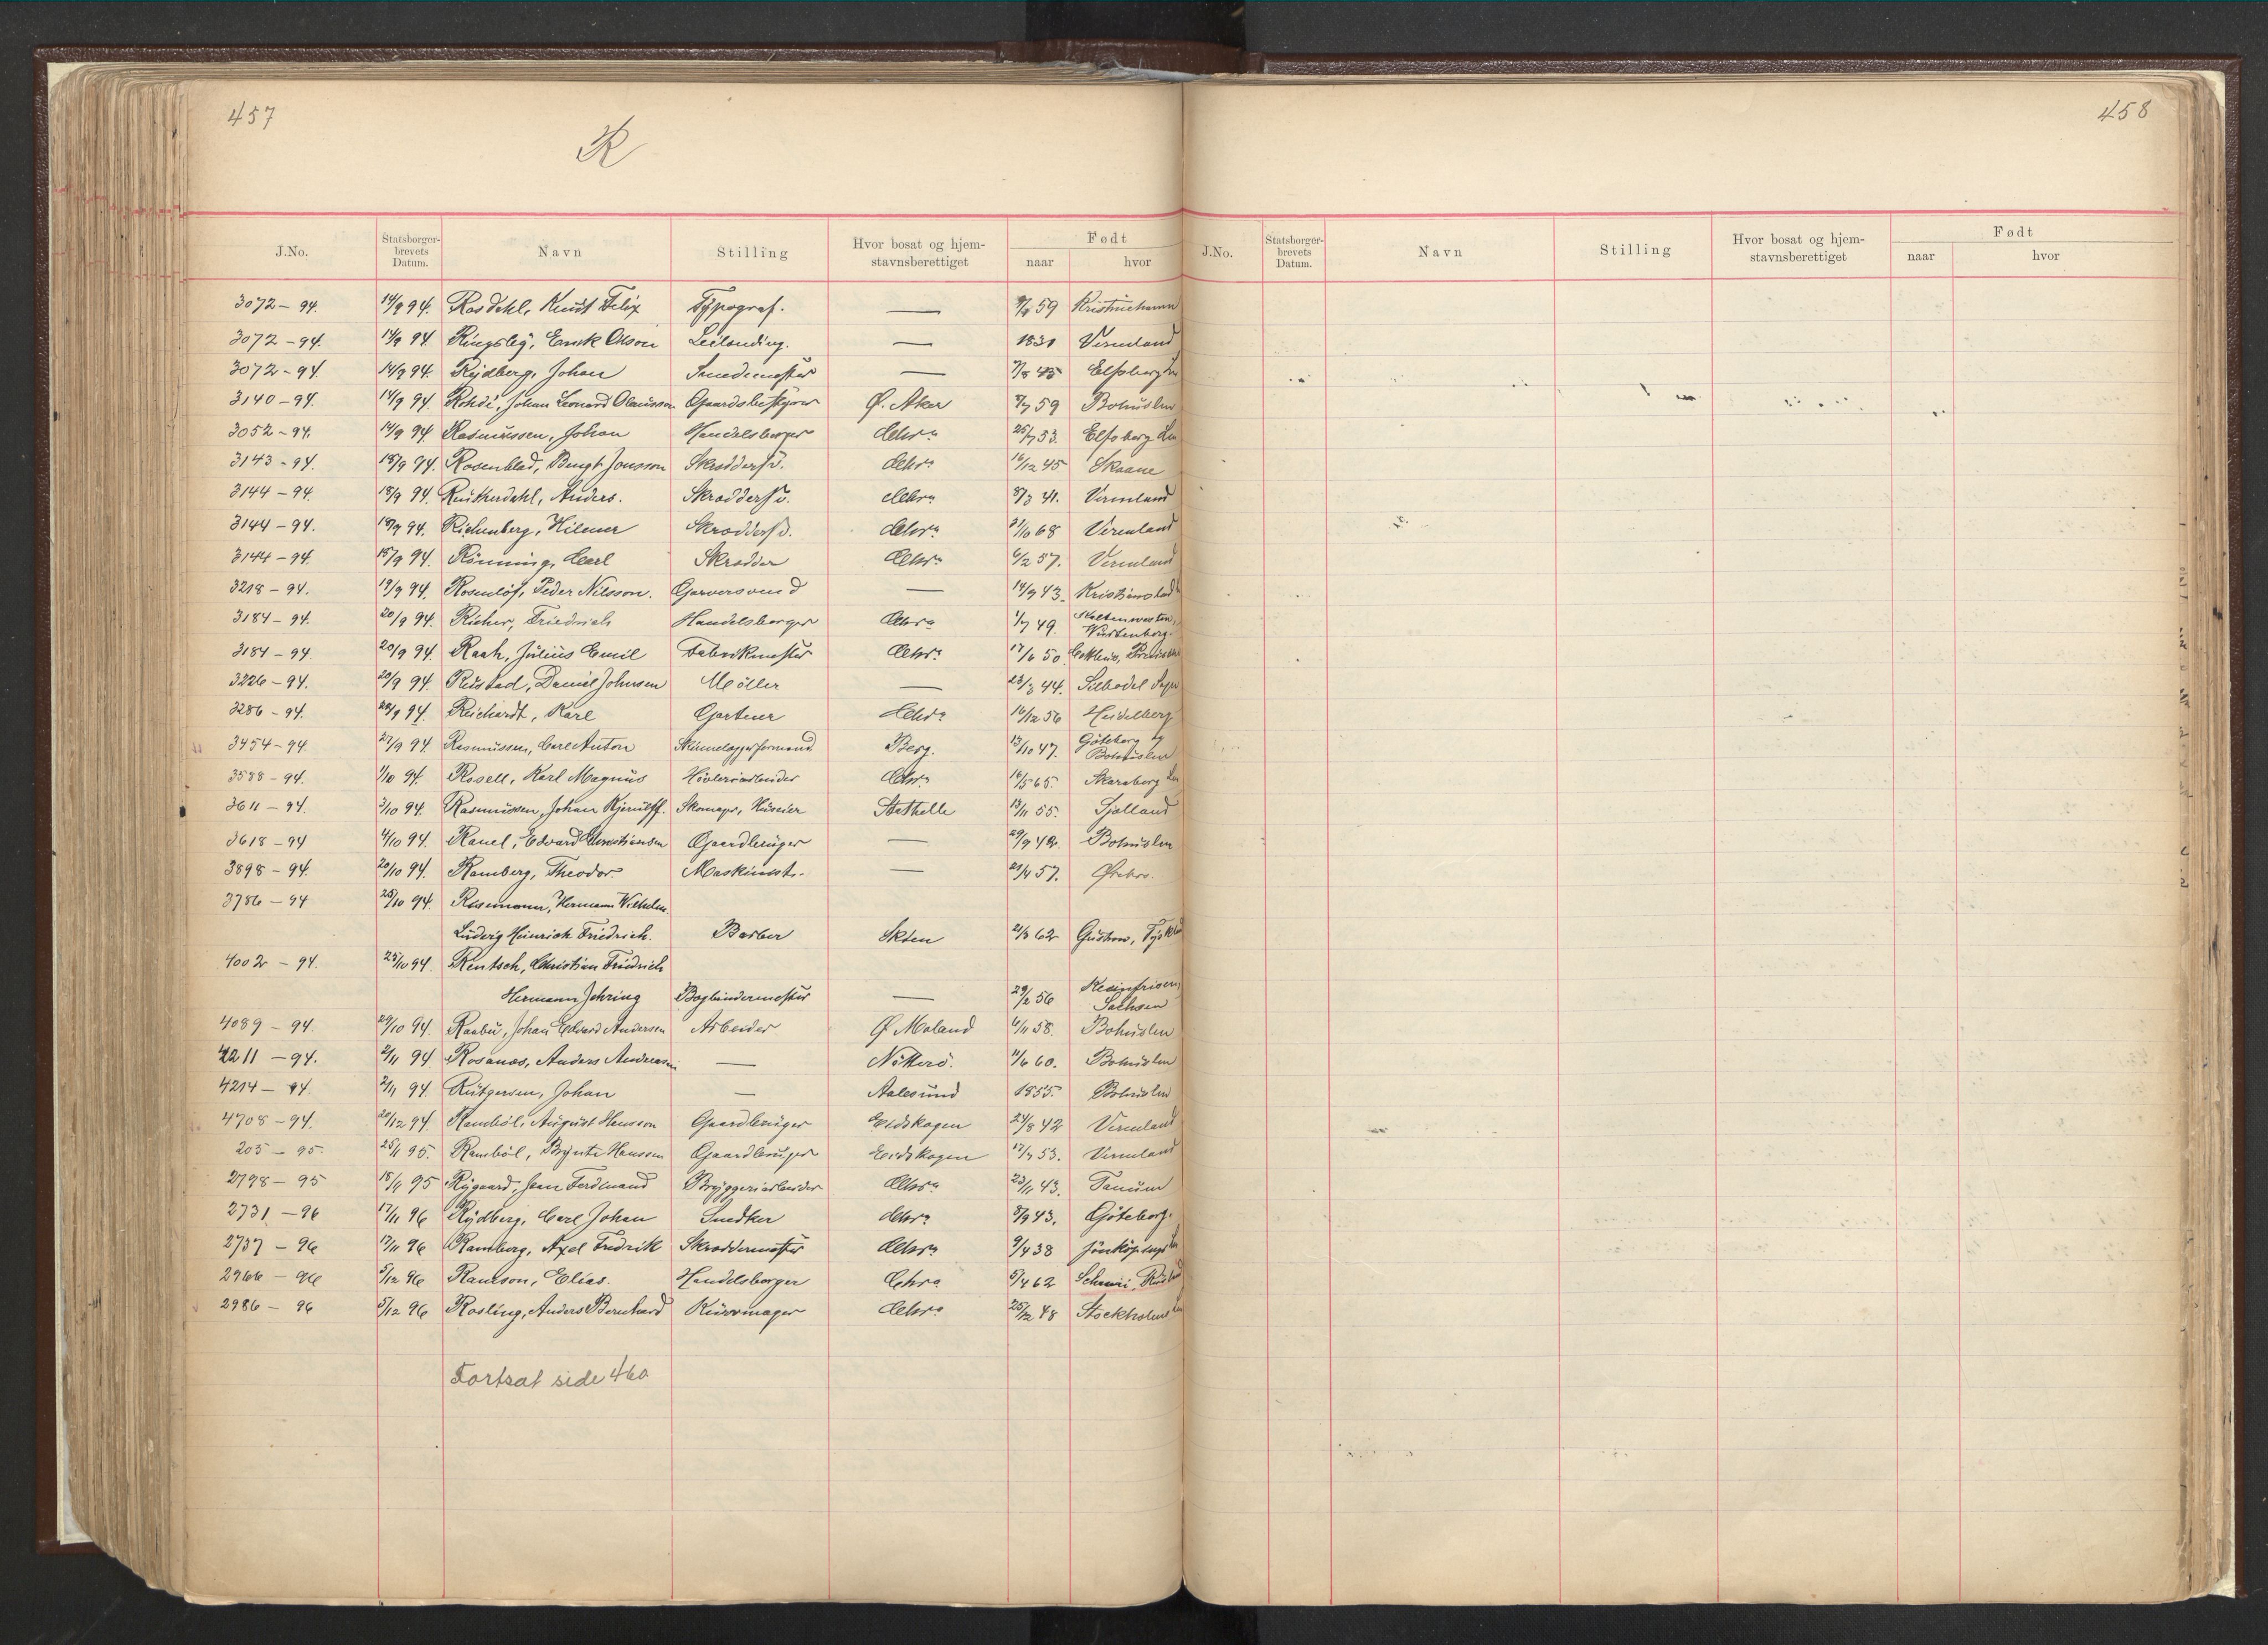 457
R
J.No. Statsborger-brevets Datum. Navn Stilling Hvor bosat og hjem-stavnsberettiget Født naar hvor
3072 – 94. 14/9 94. Rosdahl, Knut Felix Typograf. —
3072 – 94. 14/9 94 Ringsby, Olsson Leilending. — 1830 Vermland
3072 – 94 14/9 94. Rydberg, Johan Smedemester — Elfsborg
3140 – 94. 14/9 94. Rohde, Johan Leonard Olausson Gaardsbestyrer Ø. Aker 59 Bohuslen
3052 – 94. 14/9 94 Rasmussen, Johan Handelsborger Chra 53. Elfsborg Len
3143 – 94. 18/9 94. Rosenblad, Bengt Jonsson Skræddersv. Chra 16/12 45 Skaane
3144 – 94. 18/9 94. Anders. Skræddersv. Chra 8/3 41. Vermland
3144 – 94. 18/9 94. Hilmer Skræddersv. Chra 68 Vermland
3144 – 94. 18/9 94. Rönning, Carl Skrædder Chra 6/2 57. Vermland
3218 – 94. 19/9 94. Rosenlöf, Peder Nilsson. Garversvend — 14/9 43. Kristianstad
3184 – 94. 20/9 94. Richer, Friedrich Handelsborger Chra 1/7 49. Würtenberg.
3184 – 94. 20/9 94. Raah, Julius Emil Fabrikmester Chra 17/6 50
3226 – 94. 20/9 94. Restad, Daniel Johnsen Möller — 23/3 44. Silbodal Sogn
3286 – 94. 94. Reichardt, Karl Gartner Chra 16/12 56 Heidelberg
3454 – 94. 27/9 94. Rasmussen, Carl Anton Skinnelæggerformand Berg. 13/10 47. Göteborg og Bohuslen
3588 – 94. 1/10 94. Rosell, Karl Magnus Hövleriarbeider Chra 16/5 65. Skaraborg Len
3611 – 94. 3/10 94. Rasmussen, Johan Kjerulff. Skomager, Huseier Stathelle 13/11 55. Sjælland
3618 – 94 4/10 94. Edvard Christiansen Gaardbruger — 29/9 Bohuslen
3898 – 94. 20/10 94. Ramberg, Theodor. Maskinist. — 57. Ørebro.
3786 – 94 25/10 94. Rusemann, Hermann Wilhelm
Ludvig Heinrich Friedrich. Barber Skien 21/3 62 Güstrow, Tyskland
4002 – 94. 25/10 94. Rentsch, Christian Friedrich
Hermann Jehring Bogbindermester — 29/2 56 Sachsen
4089 – 94. 29/10 94. Raabu, Johan Edvard Andersen Arbeider Ø. Moland 6/11 58. Bohuslen
4211 – 94. 2/11 94 Rosanes, Anders Andersen — Nötterö. 11/6 60. Bohuslen
4214 – 94. 2/11 94. Rutgersen, Johan — Aalesund 1855. Bohuslen
4708 – 94. 20/12 94. Ramböl, August Hansson Gaardbruger Eidskogen 24/8 42 Vermland
205 – 95. 25/1 95. Ramböl, Brynte Hansson Gaardbruger Eidskogen 17/7 53. Vermland
2798 – 95 95 Rygaard, Ferdinand Bryggeriarbeider Chra 23/11 43. Tanum
2731 – 96 17/11 96 Rydberg, Carl Johan Snedker Chra 8/9 43. Göteborg.
2737 – 96 17/11 96 Ramberg, Axel Fredrik Skræddermester Chra 9/4 38 Jönköpings Len
2966 – 96 5/12 96 Ramson, Elias. Handelsborger Chra 5/4 62
2986 – 96 5/12 96 Rosling, Anders Bernhard Kurvmager Chra 25/12 48 Stockholms Len
Fortsat side 460
458
J.No. Statsborger-brevets Datum. Navn Stilling Hvor bosat og hjem-stavnsberettiget Født naar hvor